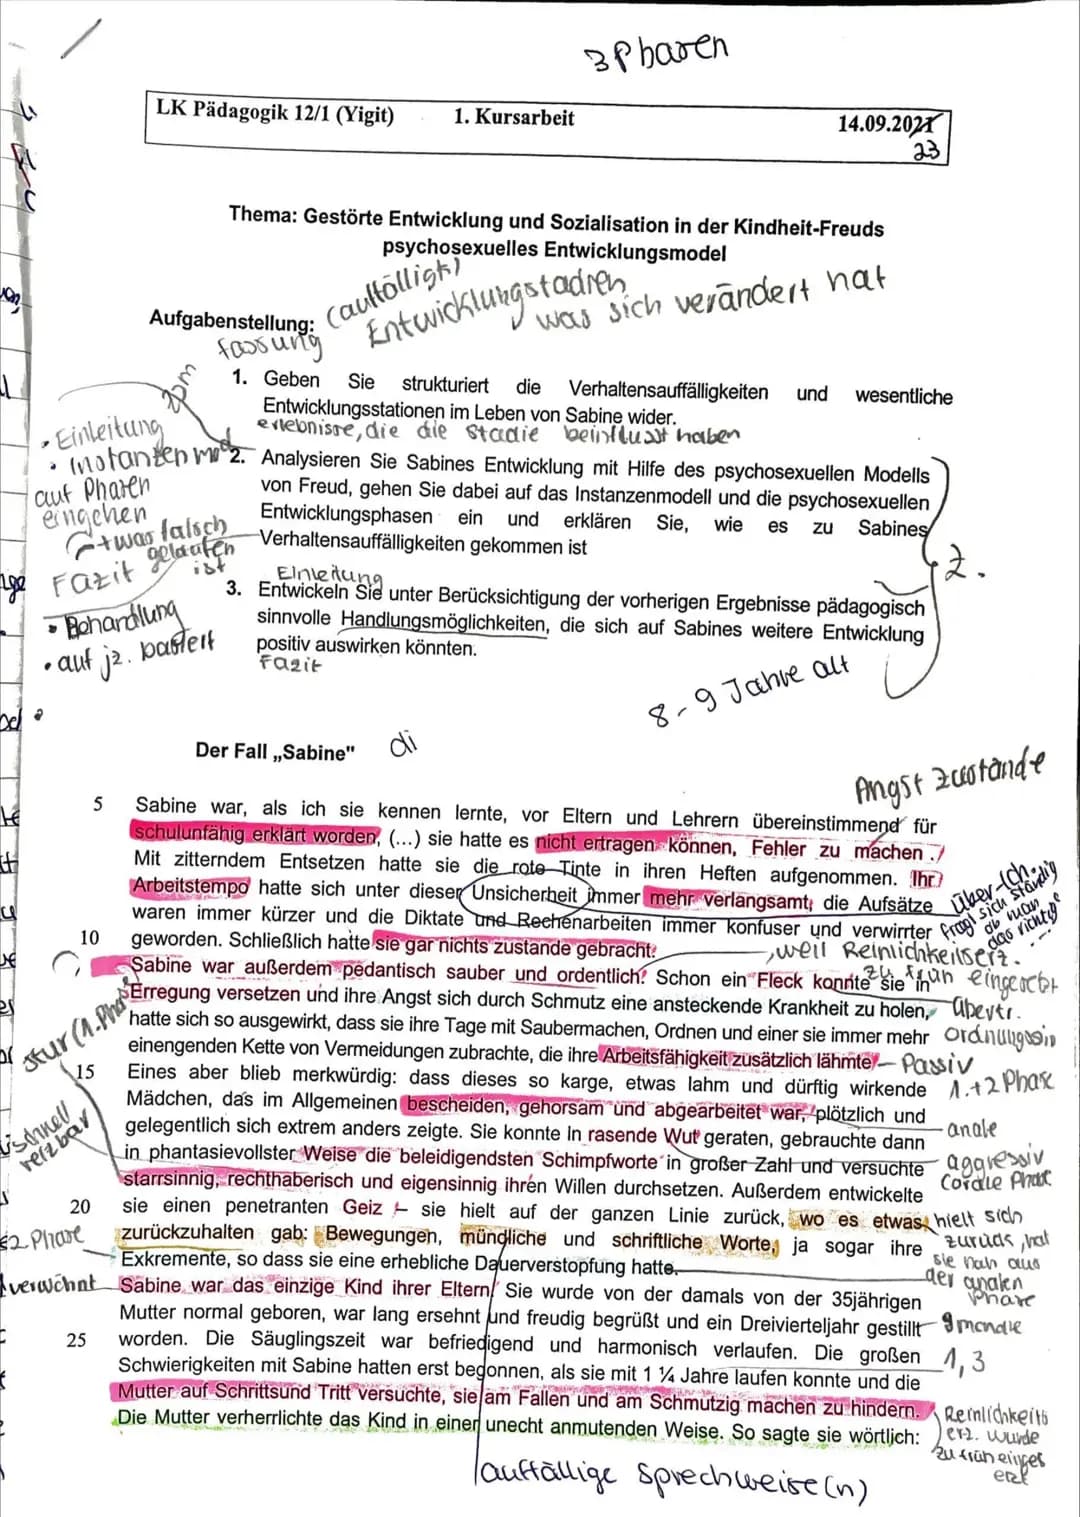 3 Phasen
LK Pädagogik 12/1 (Yigit) 1. Kursarbeit 14.09.2021
23
Thema: Gestörte Entwicklung und Sozialisation in der Kindheit-Freuds
psychosexuelles Entwicklungsmodel
(auffälligk)
Entwicklungstadien
was sich verändert hat
Aufgabenstellung:
fassung
1. Geben Sie strukturiert die Verhaltensauffälligkeiten und wesentliche
Entwicklungsstationen im Leben von Sabine wider.
erlebnisse, die die Stadie beinflusst haben
• Einleitung
• Instanzenmod
auf Phasen
eingehen
→ was falsch
gelaufen
ist
Fazit
2. Analysieren Sie Sabines Entwicklung mit Hilfe des psychosexuellen Modells
von Freud, gehen Sie dabei auf das Instanzenmodell und die psychosexuellen
Entwicklungsphasen ein und erklären Sie, wie es zu Sabines
Verhaltensauffälligkeiten gekommen ist
2.
Einleitung
3. Entwickeln Sie unter Berücksichtigung der vorherigen Ergebnisse pädagogisch
sinnvolle Handlungsmöglichkeiten, die sich auf Sabines weitere Entwicklung
positiv auswirken könnten.
Fazit
• Behandlung
• auf jz. basiert
8-9 Jahre alt
Der Fall „Sabine"
di
Angst zustände
5 Sabine war, als ich sie kennen lernte, vor Eltern und Lehrern übereinstimmend für
schulunfähig erklärt worden, (...) sie hatte es nicht ertragen können, Fehler zu machen .
Mit zitterndem Entsetzen hatte sie die rote Tinte in ihren Heften aufgenommen. Ihr
Arbeitstempo hatte sich unter dieser Unsicherheit immer mehr verlangsamt, die Aufsätze
waren immer kürzer und die Diktate und Rechenarbeiten immer konfuser und verwirrter
10 geworden. Schließlich hatte sie gar nichts zustande gebracht.
Sabine war außerdem pedantisch sauber und ordentlich. Schon ein Fleck konnte sie in
Erregung versetzen und ihre Angst sich durch Schmutz eine ansteckende Krankheit zu holen,
hatte sich so ausgewirkt, dass sie ihre Tage mit Saubermachen, Ordnen und einer sie immer mehr
einengenden Kette von Vermeidungen zubrachte, die ihre Arbeitsfähigkeit zusätzlich lähmte
15 Eines aber blieb merkwürdig: dass dieses so karge, etwas lahm und dürftig wirkende
Mädchen, das im Allgemeinen bescheiden, gehorsam und abgearbeitet war, plötzlich und
gelegentlich sich extrem anders zeigte. Sie konnte In rasende Wut geraten, gebrauchte dann
in phantasievollster Weise die beleidigendsten Schimpfworte in großer Zahl und versuchte
starrsinnig, rechthaberisch und eigensinnig ihren Willen durchsetzen. Außerdem entwickelte
20 sie einen penetranten Geiz – sie hielt auf der ganzen Linie zurück, wo es etwas
zurückzuhalten gab: Bewegungen, mündliche und schriftliche Worte, ja sogar ihre
Exkremente, so dass sie eine erhebliche Dauerverstopfung hatte.
Sabine war das einzige Kind ihrer Eltern. Sie wurde von der damals von der 35jährigen
Mutter normal geboren, war lang ersehnt und freudig begrüßt und ein Dreivierteljahr gestillt
25 worden. Die Säuglingszeit war befriedigend und harmonisch verlaufen. Die großen
Schwierigkeiten mit Sabine hatten erst begonnen, als sie mit 1 ¼ Jahre laufen konnte und die
Mutter auf Schrittsund Tritt versuchte, sie am Fallen und am Schmutzig machen zu hindern.
Die Mutter verherrlichte das Kind in einer unecht anmutenden Weise. So sagte sie wörtlich:
Über-Ich.
fragt sich ständig
ob man
das richtig
weil Reinlichkeitserz.
zu früh eingesetzt
übertr.
Passiv
1.+2 Phase
anale
aggressiv
hielt sich
zurück, hat
sie nah aus
der analen
Phase
9 monate
1,3
Reinlichkeits
erz. wurde
zu früh einges
etzt
stur (1. Phase
schnell
reizbar
2 Phase
verwöhnt
auffällige Sprechweise(n)